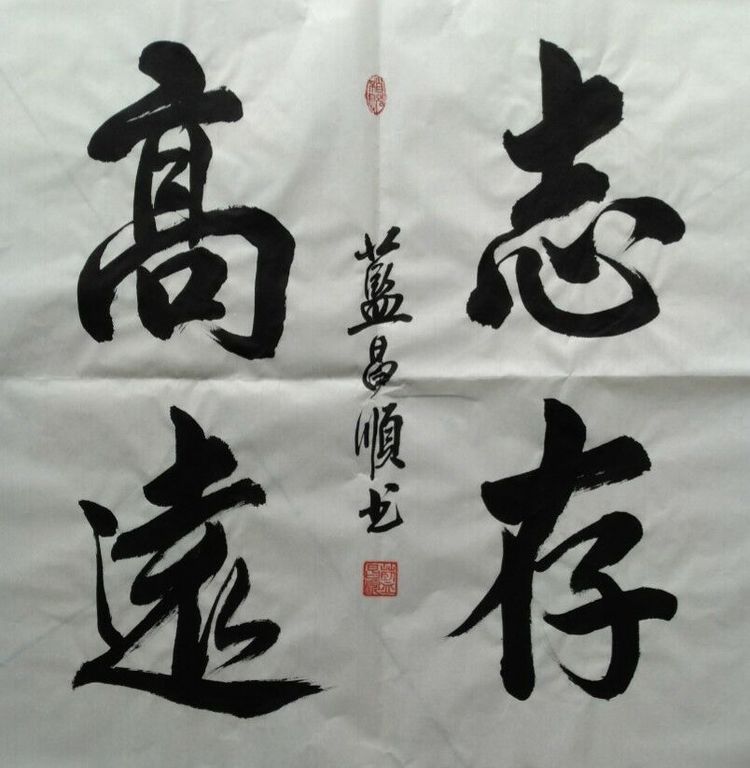 志存
高遠
藍昌順书